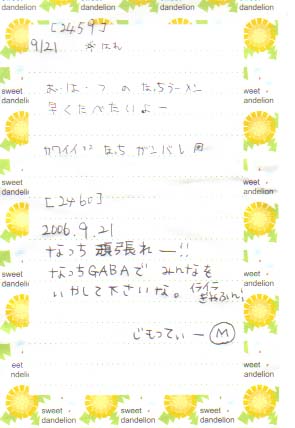 [2459]
9/21 ※はれ
お・は・つ の なっちラーメン
早くたべたいよー
カワイイ なっち ガンバレ
[2460]
2006.9.21
なっち 頑張れー!!
なっちGABAで みんなを
いやして下さいな。イライラ
ぎゃふん!
じもってぃー Ⓜ
sweet
dandelion
sweet
dandelion
sweet
dandelion
sweet
dandelion
sweet
dandelion
sweet
dandelion
sweet
dandelion
sweet
dandelion
sweet
dandelion
sweet
dandelion